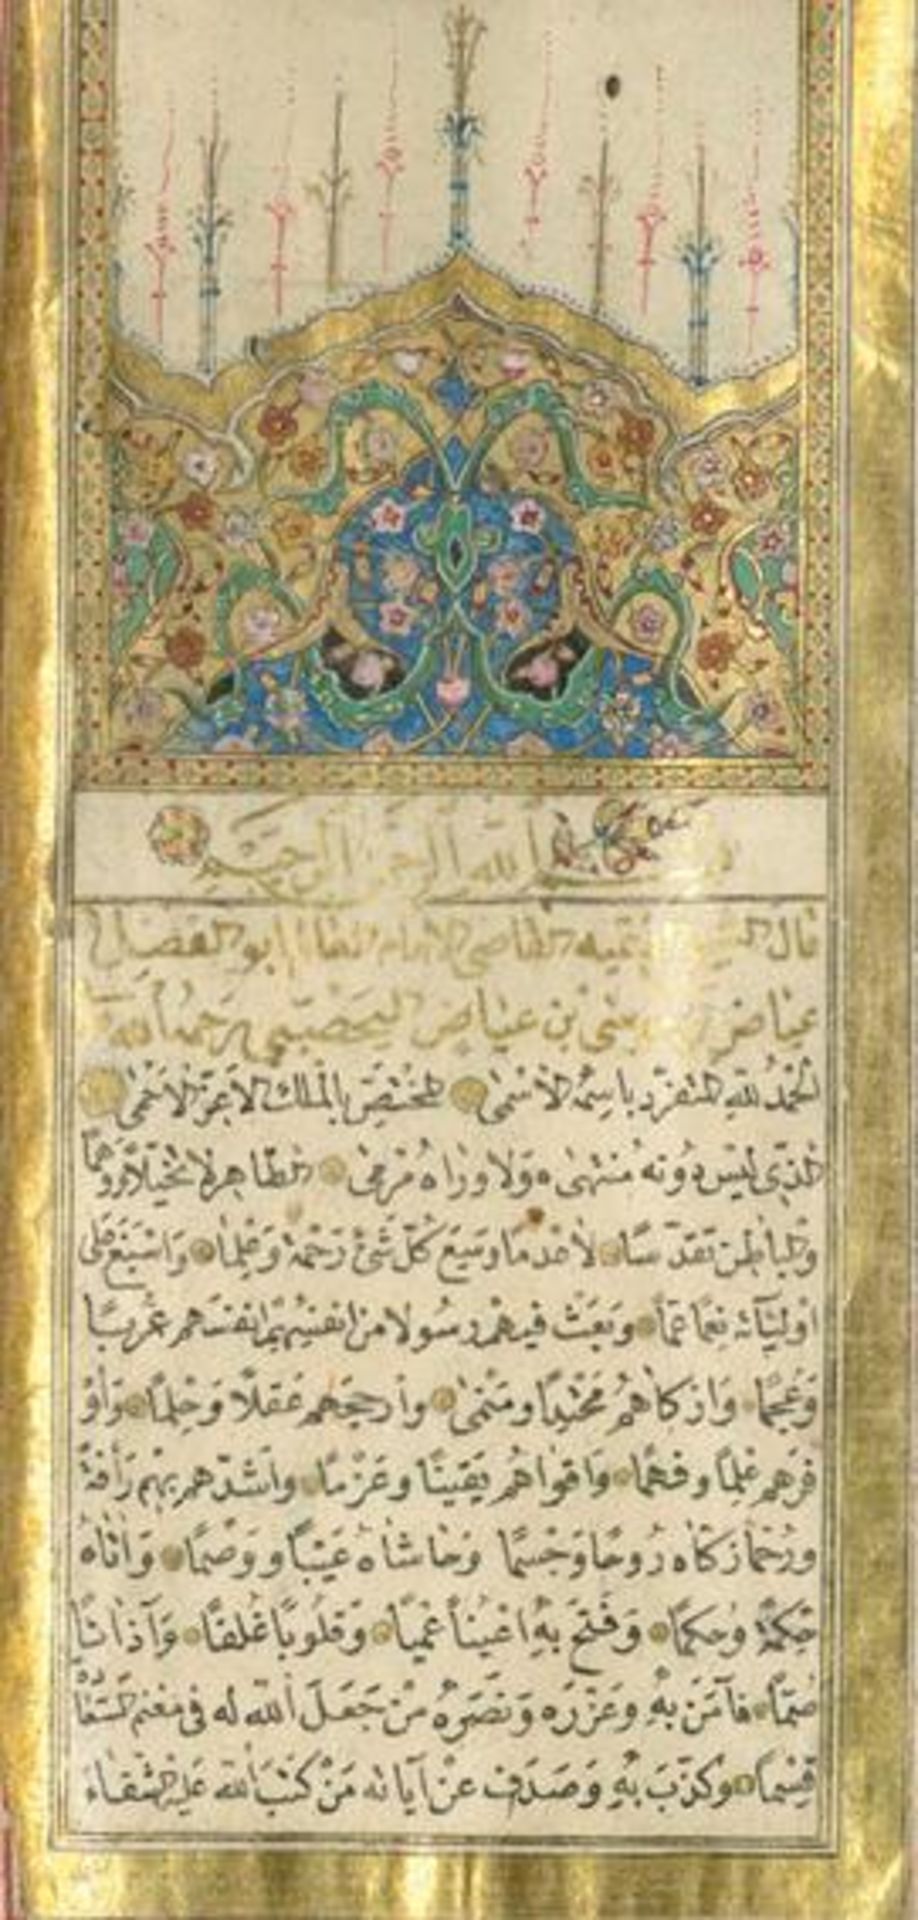 بسم الله الرحمن الرحيم
قال الشيخ الفقيه القاضي الإمام الحافظ أبو الفضل
عياض بن موسى بن عياض اليحصبي رحمه الله
الحَمْدُ للهِ المنفرد باسمه الأسمى المختصّ بالملك الأعزّ الأحمى
الذي ليس دونه منتهى ولا وراه مرمى الظاهر لا تخيلا ووهمًا
والباطن تقدّسًا لا عدمًا وسع كلّ شئ رحمة وعلمًا واسبغ على
اوليآئه نعمًا عمًّا وبعث فيهم رسولا من انفسهم انفسهم عربًا
وعجمًا وازكاهم محتدًا ومنمى وارجحهم عقلًا وحلمًا واو
فرهم علمًا وفهمًا واقواهم يقينًا وعزمًا واشدّهم بهم رأفة
ورحمًا زكّاه روحًا وجسمًا وحاشاه عيبًا ووصمًا وآتاه
حكمة وحكمًا وفتح به اعينًا عميًا وقلوبًا غلفًا وآذانًا
صمًّا فآمن به وعزّره ونصره من جعل الله له في مغنم السعادة
قسمًا وكذّب به وصدف عن آياته من كتب الله عليه الشقاء